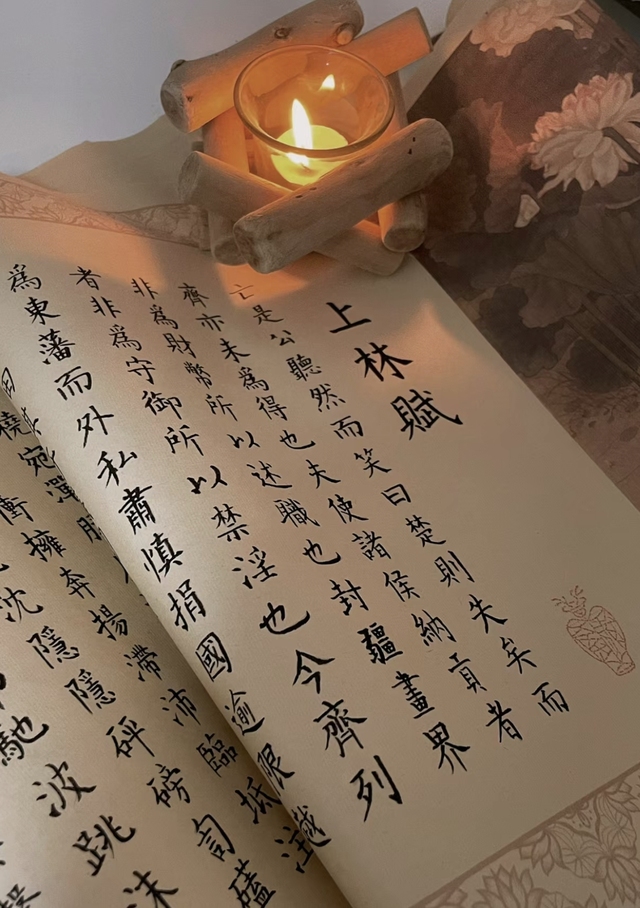 上林賦
亡是公聽然而笑曰楚則失矣而
齊亦未為得也夫使諸侯納貢者
非為財幣所以述職也封疆畫界
者非為守御所以禁淫也今齊列
為東藩而外私肅慎捐國逾限
橈宛潬膠
衝擁奔揚滯沛臨坻
沈隱隱砰磅訇磕
馳波跳沫